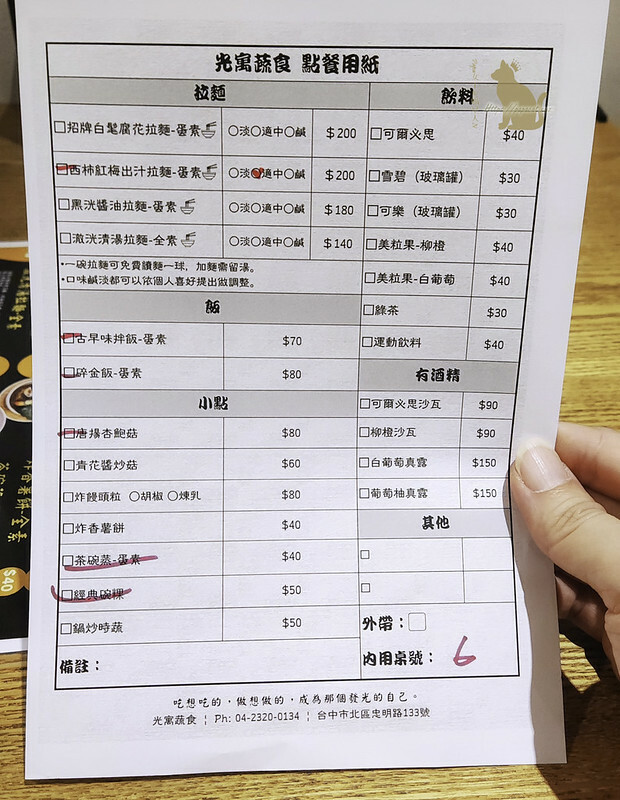 光寓蔬食 點餐用紙
拉麵
□招牌白髦腐花拉麵-蛋素 ○淡○適中○鹹 $200
□西柿紅梅出汁拉麵-蛋素 ○淡○適中○鹹 $200
□黑洸醬油拉麵-蛋素 ○淡○適中○鹹 $180
□澈洸清湯拉麵-全素 ○淡○適中○鹹 $140
•一碗拉麵可免費續麵一球，加麵需留湯。
•口味鹹淡都可以依個人喜好提出做調整。
飯
□古早味拌飯-蛋素 $70
□碎金飯-蛋素 $80
小點
□唐揚杏鮑菇 $80
□青花醬炒菇 $60
□炸饅頭粒 ○胡椒 ○煉乳 $80
□炸香薯餅 $40
□茶碗蒸-蛋素 $40
□經典碗粿 $50
□鍋炒時蔬 $50
備註：
飲料
□可爾必思 $40
□雪碧（玻璃罐） $30
□可樂（玻璃罐） $30
□美粒果-柳橙 $40
□美粒果-白葡萄 $40
□綠茶 $30
□運動飲料 $40
有酒精
□可爾必思沙瓦 $90
□柳橙沙瓦 $90
□白葡萄真露 $150
□葡萄柚真露 $150
其他
□
□
外帶：□
內用桌號： 6
吃想吃的，做想做的，成為那個發光的自己。
光寓蔬食 ¦ Ph: 04-2320-0134 ¦ 台中市北區忠明路133號
$40